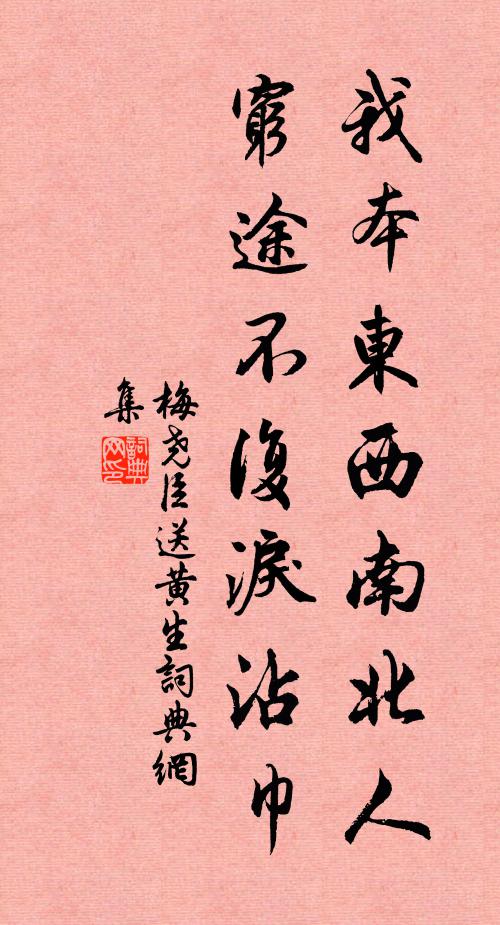 我本東西南北人
窮途不復淚沾巾
梅堯臣送黃生詞典網
集
詞典
网印